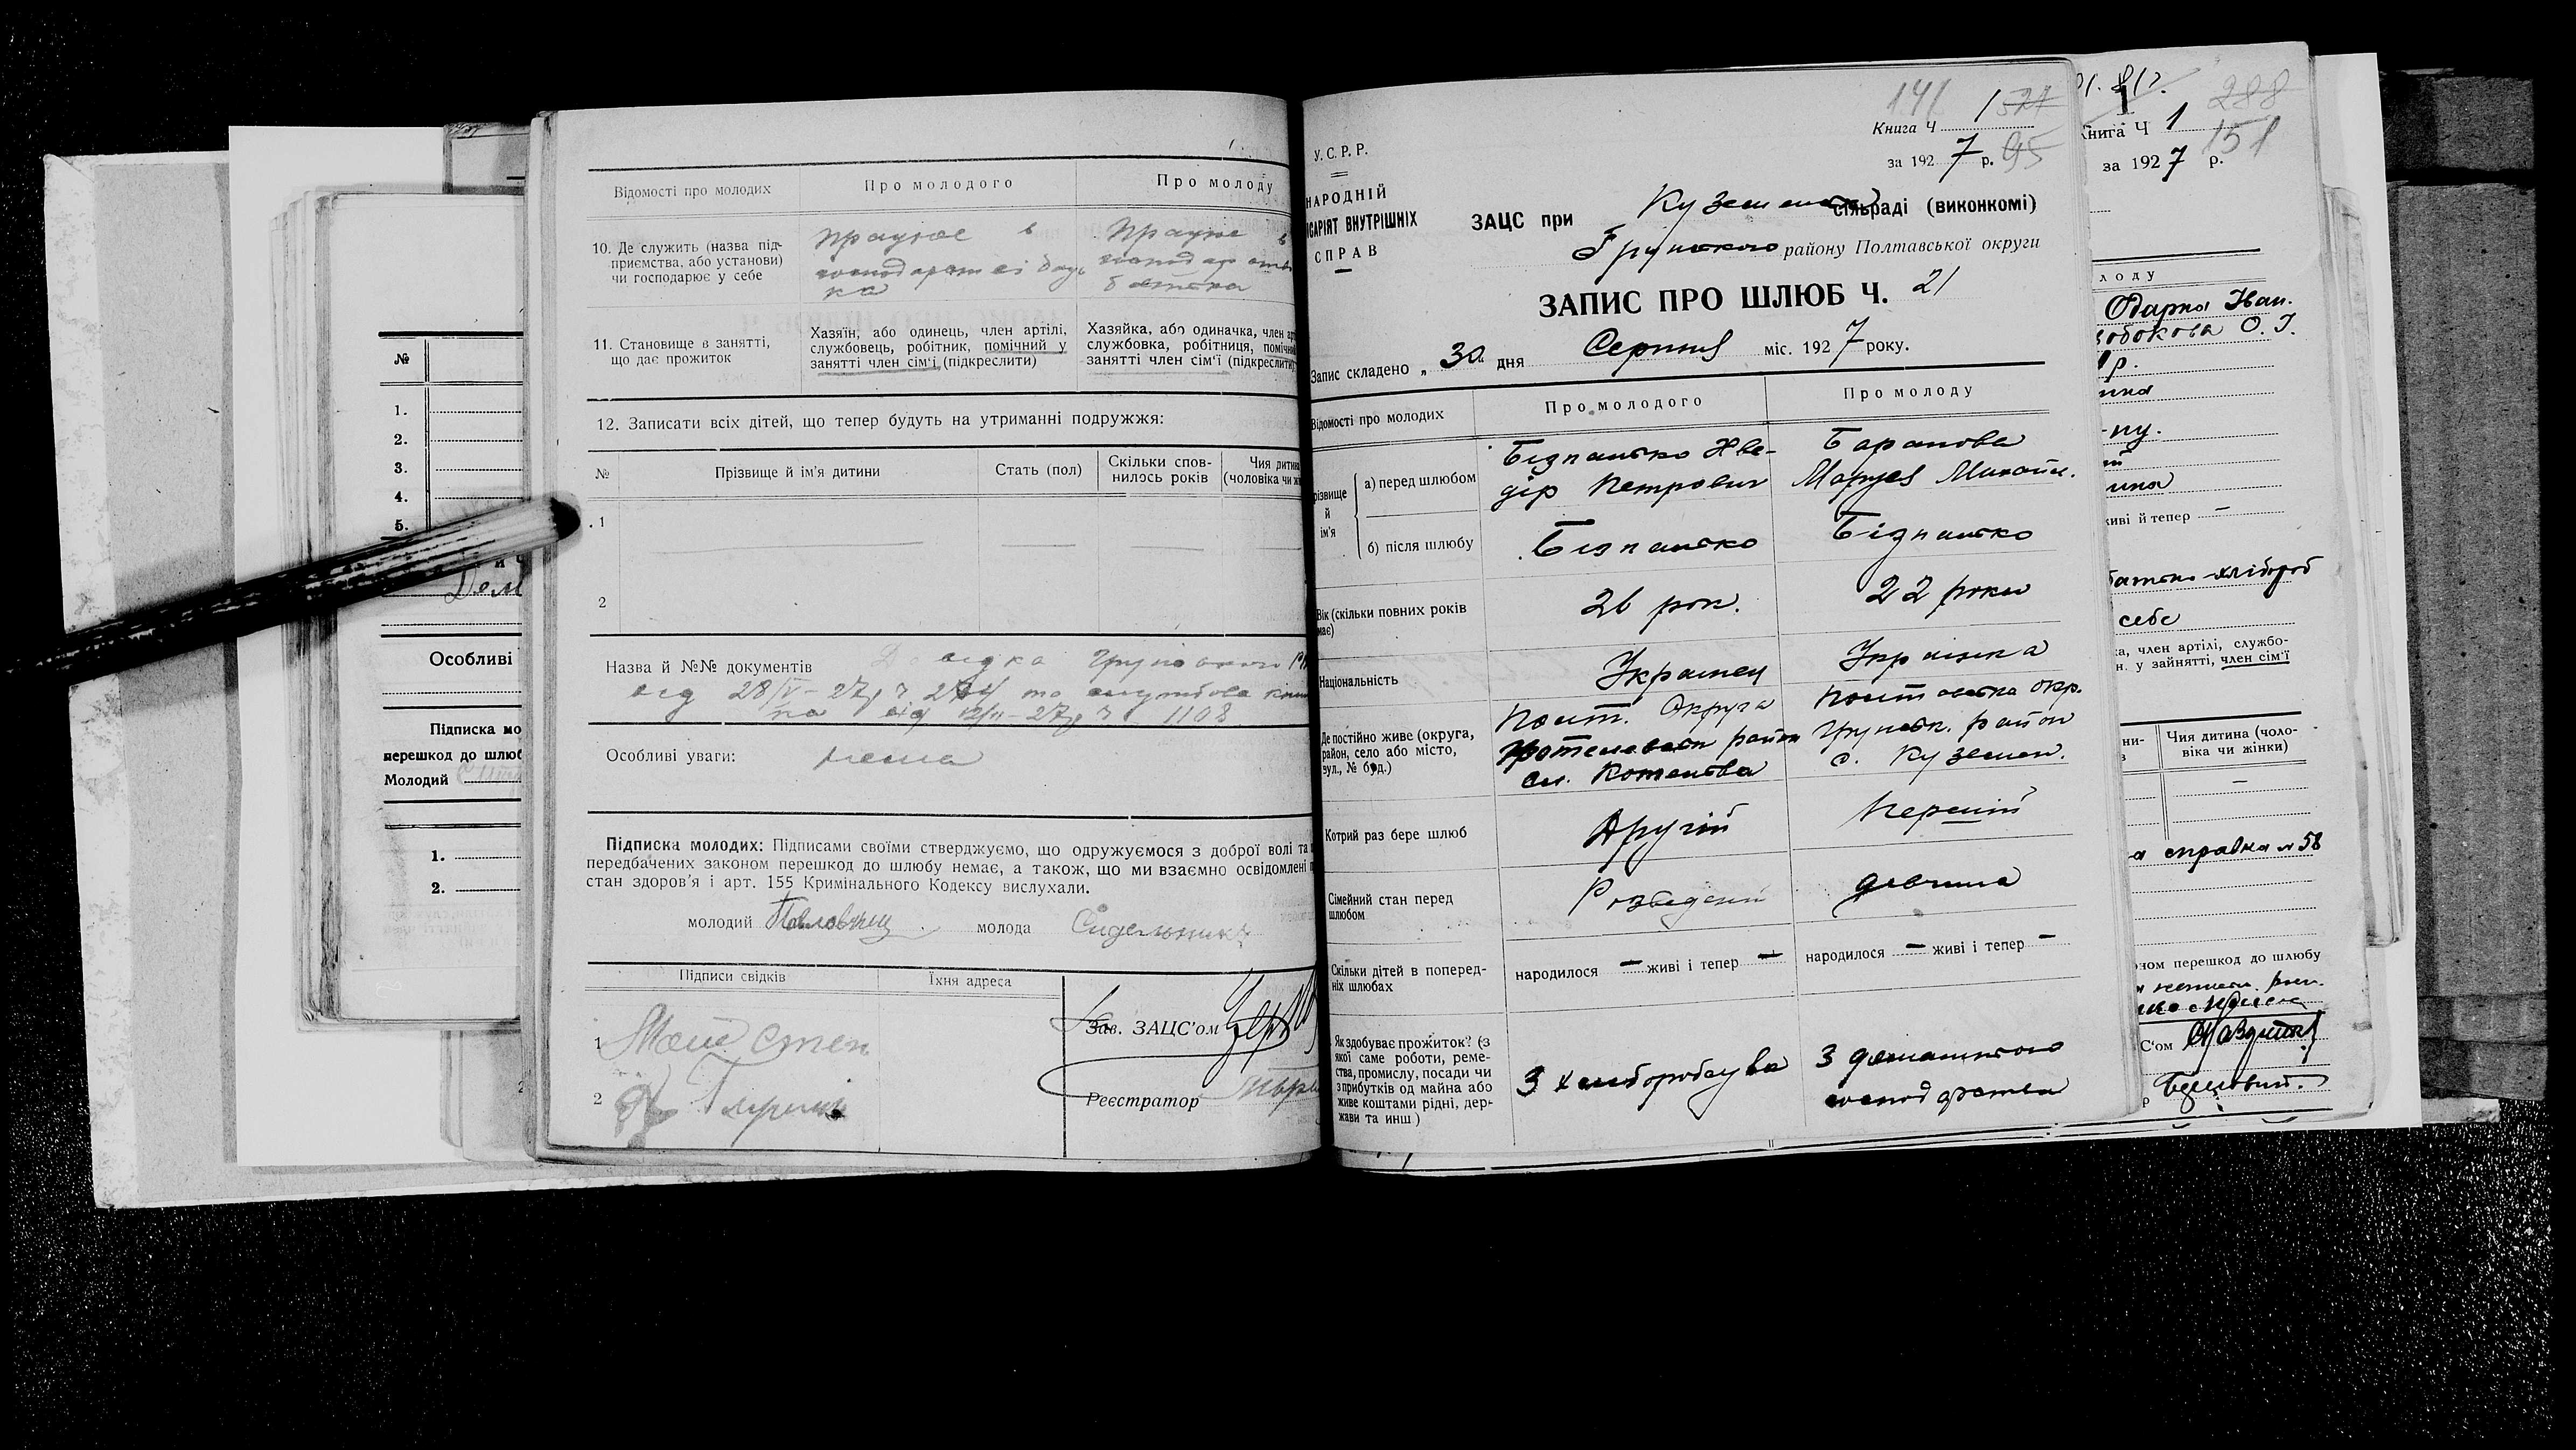 №
1.
2.
3.
4.
5.
Дем
Особливі
Підписка мо
перешкод до шлюб
Молодий
1.
2.
Відомості про молодих
Про молодого
Про молоду
10. Де служить (назва під-
приємства, або установи)
чи господарює у себе
працює в
господарстві бать
ка
працює в
господарстві
батька
11. Становище в занятті,
що дає прожиток
Хазяїн, або одинець, член артілі,
службовець, робітник, помічний у
занятті член сім'ї (підкреслити)
Хазяйка, або одиначка, член арт
службовка, робітниця, помічна
занятті член сім'ї (підкреслити)
12. Записати всіх дітей, що тепер будуть на утриманні подружжя:
№
Прізвище й ім'я дитини
Стать (пол)
Скільки спов-
нилось років
Чия дитина
(чоловіка чи ж
1
2
Назва й №№ документів
Довідка Грунського
від 28/V-27р ч 274 та службова книж
ка від 12/II-27р ч 1108
Особливі уваги:
нема
Підписка молодих: Підписами своїми стверджуємо, що одружуємося з доброї волі та
передбачених законом перешкод до шлюбу немає, а також, що ми взаємно освідомлені п
стан здоров'я і арт. 155 Кримінального Кодексу вислухали.
молодий
молода Сидельник
Підписи свідків
Їхня адреса
1
2
Зав. ЗАЦС'ом
Реєстратор
У.С.Р.Р.
НАРОДНІЙ
ІСАРІЯТ ВНУТРІШНІХ
СПРАВ
141
Книга Ч 1
за 1927 р. 95
ЗАЦС при Куземен сільраді (виконкомі)
Грунського району Полтавської округи
ЗАПИС ПРО ШЛЮБ Ч. 21
Запис складено „30" дня Серпня міс. 1927 року.
Відомості про молодих
Про молодого
Про молоду
різвище
й
ім'я
а) перед шлюбом
Бізпалько Хве-
дір Петрович
Баранова
Маруся Михайл.
б) після шлюбу
Бізпалько
Бізпалько
Вік (скільки повних років
має)
26 рок.
22 роки
Національність
Українец
Українка
Де постійно живе (округа,
район, село або місто,
вул., № буд.)
Полт. Округа
Котелевськ район
сл. Котельва
Полтавська окр.
Грунськ. район
с. Куземен.
Котрий раз бере шлюб
Другій
Перший
Сімейний стан перед
шлюбом
Розведений
дівчина
Скільки дітей в поперед-
ніх шлюбах
народилося — живі і тепер —
народилося — живі і тепер —
Як здобуває прожиток? (з
якої саме роботи, реме-
ства, промислу, посади чи
з прибутків од майна або
живе коштами рідні, дер-
жави та инш)
З хліборобства
З домашнього
господарства
288
Книга Ч 1
151
за 1927 р.
лоду
Одарка Іван.
р.
живі й тепер —
хлібороб
себе
ка, член артілі, службо-
н. у зайнятті, член сім'ї
Чия дитина (чоло-
віка чи жінки)
—
справка № 58
оном перешкод до шлюбу
С'ом
р